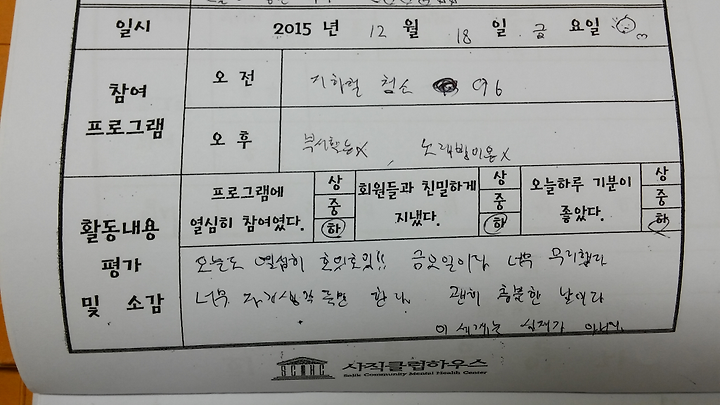 일시 2015 년 12 월 18 일 금 요일
참여 프로그램
오 전 지하철 청소 096
오 후 부서활동X, 노래방이용X
활동내용 평가 및 소감
프로그램에 열심히 참여였다. 상 중 하
회원들과 친밀하게 지냈다. 상 중 하
오늘하루 기분이 좋았다. 상 중 하
오늘도 열심히 !! 금요일이라 너무 무리했다
너무 한다. 괜히 흥분한 날이다
이 세계는 실재가 아니
사직클럽하우스
Sajik Community Mental Health Center